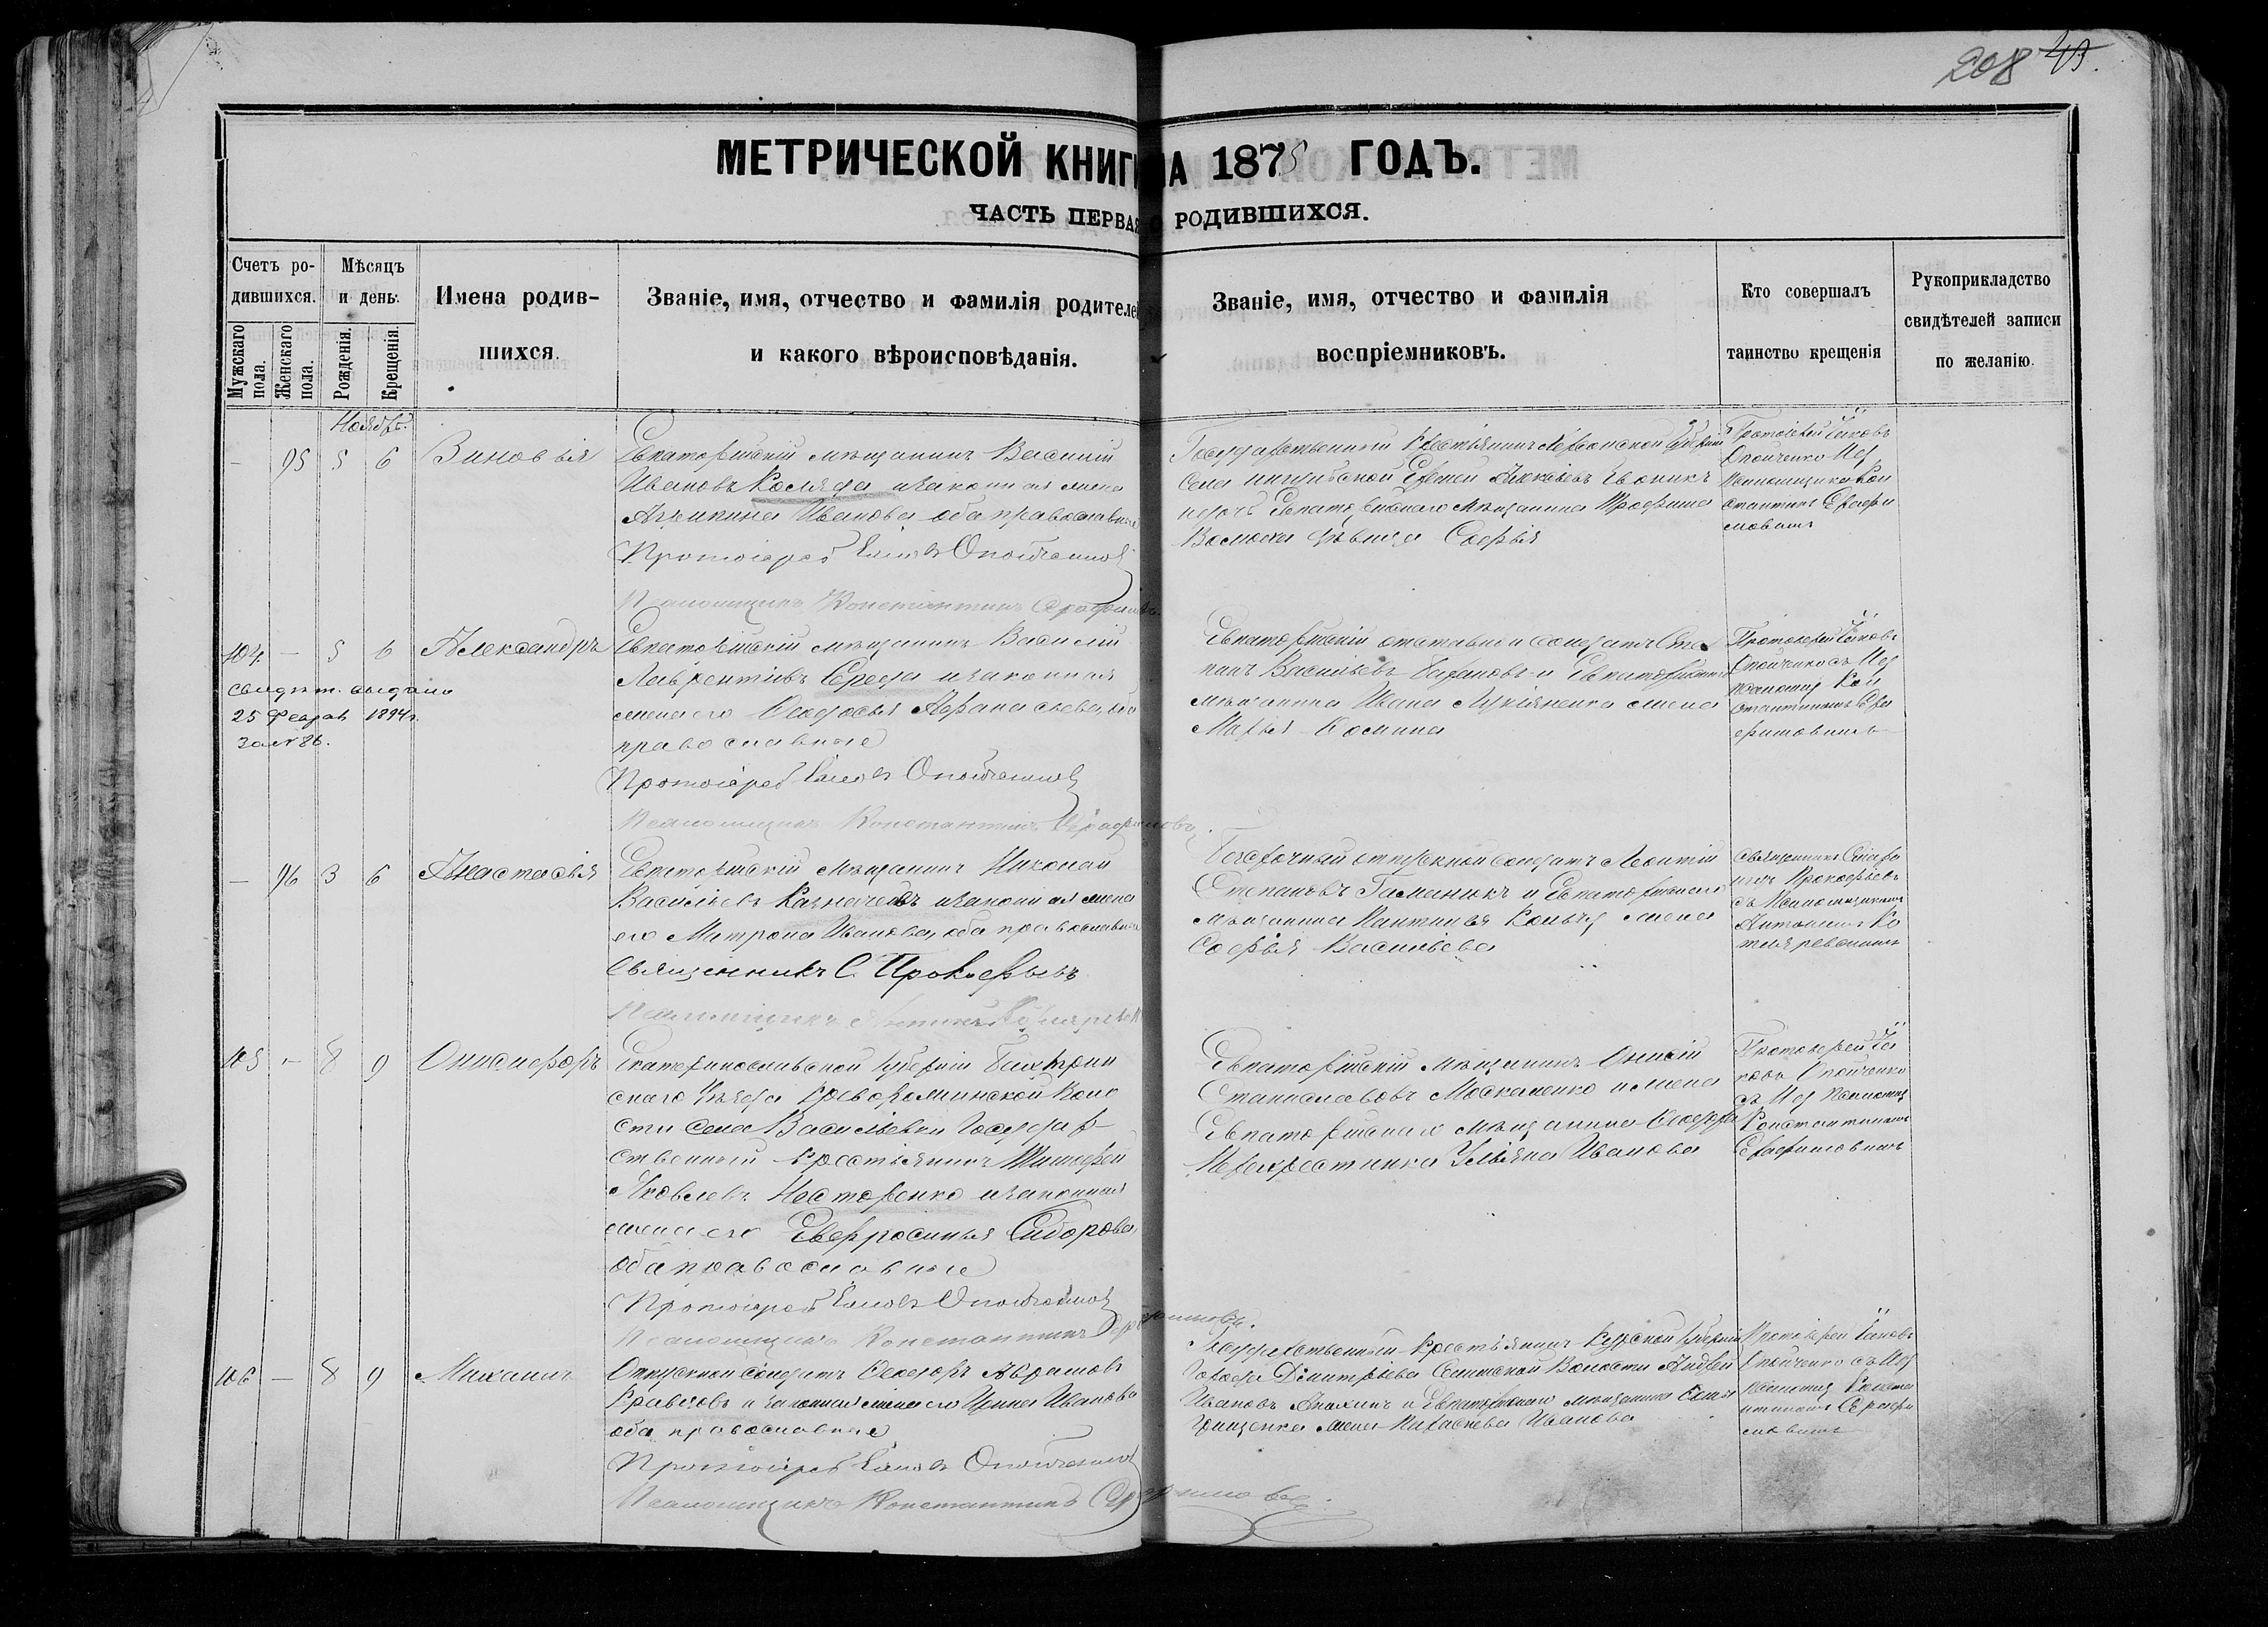 208 49.
МЕТРИЧЕСКОЙ КНИГИ НА 1875 ГОДЪ.
ЧАСТЬ ПЕРВАЯ О РОДИВШИХСЯ.
Счетъ ро-
дившихся.
Мужскаго пола.
Женскаго пола.
Мѣсяцъ
и день.
Рожденія.
Крещенія.
Имена родив-
шихся.
Званіе, имя, отчество и фамилія родителей
и какого вѣроисповѣданія.
Званіе, имя, отчество и фамилія
воспріемниковъ.
Кто совершалъ
таинство крещенія
Рукоприкладство
свидѣтелей записи
по желанію.
Ноябрь
– 95 5 6 Зиновія
Евпаторійскій мѣщанинъ Василій
Ивановъ Коляда и законная жена
Ивановна оба православные
Протоіерей Іаковъ Опойченко
Псаломщикъ Константинъ Серафимовъ
Государственный крестьянинъ Херсонской Губерніи
Села
дочь Евпаторійскаго мѣщанина Трофима
дѣвица Софья
Протоіерей Іаковъ
Опойченко
Псаломщикомъ Кон
стантиномъ Серафи
мовымъ
104 – 5 6 Александръ
свидѣт. выдано
25 Февраля 1894 г.
за № 86.
Евпаторійскій мѣщанинъ Василій
Лаврентіевъ Середа и законная
жена его Феодосья Афанасьева, оба
православные
Протоіерей Іаковъ Опойченко
Псаломщикъ Константинъ Серафимовъ
Евпаторійскій отставной солдатъ Сте
панъ Васильевъ и Евпаторійскаго
мѣщанина Ивана Лукіяненка жена
Марья
Протоіерей Іаковъ
Опойченко съ
Псаломщ Кон
стантиномъ Сера
фимовымъ
– 96 3 6 Анастасія
Евпаторійскій мѣщанинъ Николай
Васильевъ Казначеевъ и законная жена
его Матрона Иванова, оба православные
Священникъ С. Прокофьевъ
Псаломщикъ
Безсрочный отпускной солдатъ Леонтій
Степановъ Гаманюкъ и Евпаторійскаго
мѣщанина жена
Софья Васильева
Священникъ
Прокофьевъ
съ Псаломщикомъ
105 – 8 9 Онисифоръ
Екатеринославской губерніи
скаго Уѣзда Воло
сти Села Васильевки Государ
ственный крестьянинъ Тимофей
Яковлевъ Несторенко и законная
жена его Евфросинья Сидорова,
оба православные
Протоіерей Іаковъ Опойченко
Псаломщикъ Константинъ Серафимовъ.
Евпаторійскій мѣщанинъ Онисій
Станиславовъ Москаленко и жена
Евпаторійскаго мѣщанина Феодора
Ульяна Иванова
Протоіерей Іа
ковъ Опойченко
Константиномъ
Серафимовымъ
106 – 8 9 Михаилъ
Отпускной солдатъ Феодоръ Абрамовъ
Кравцовъ и законная жена его Ирина Иванова
оба православные
Протоіерей Іаковъ Опойченко
Псаломщикъ Константинъ Серафимовъ.
Государственный крестьянинъ Курской губерніи
Города Дмитріева Волости Андрей
Ивановъ и Евпаторійскаго мѣщанина
Грищенка жена Параскева Иванова
Протоіерей Іаковъ
Опойченко съ
Псаломщ Конста
нтиномъ Серафи
мовымъ